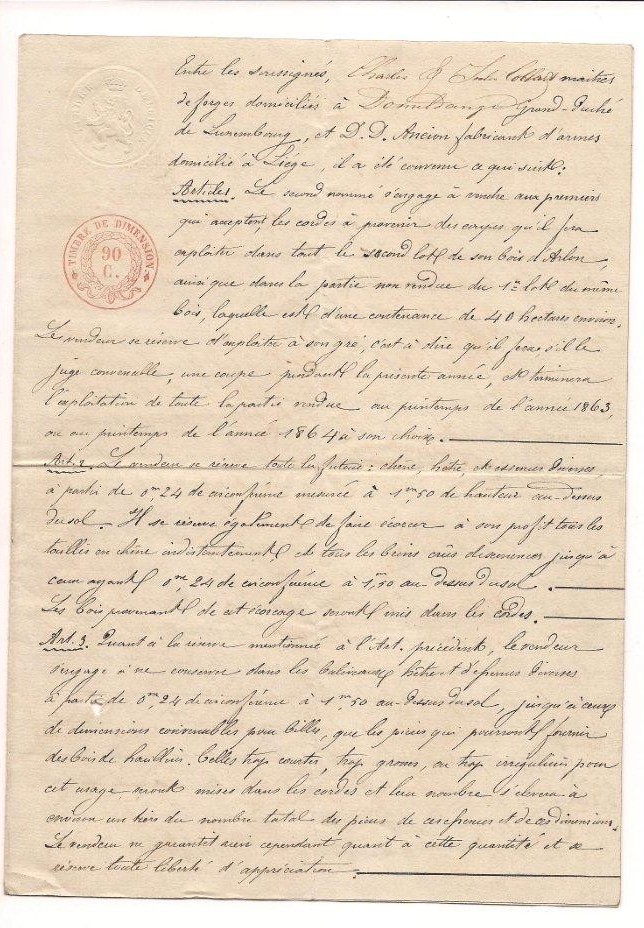 TIMBRE DE DIMENSION
90
C.
Entre les soussignés, Charles & Jules Collart maitres
de forges domiciliés à Dommeldange Grand-Duché
de Luxembourg, et D. D. Ancion fabricant d'armes
domicilié à Liége, il a été convenu ce qui suit.
Article 1. Le second nommé s'engage à vendre aux premiers
qui acceptent, les cordes à provenir des coupes qu'il fera
exploiter dans tout le second lot de son bois d'Arlon,
ainsi que dans la partie non vendue du 1er lot du même
bois, laquelle est d'une contenance de 40 hectares environ.
Le vendeur se réserve d'exploiter à son gré, c'est à dire qu'il fera s'il le
juge convenable, une coupe pendant la présente année, et terminera
l'exploitation de toute la partie vendue au printemps de l'année 1863,
ou au printemps de l'année 1864 à son choix.
Art. 2. Le vendeur se réserve toute la futaie : chêne, hêtre, et essences diverses
à partir de 0m,24 de circonférence mesurée à 1m,50 de hauteur au-dessus
du sol. Il se réserve également de faire écorcer à son profit tous les
taillis en chêne indistinctement et tous les brins crûs de semences jusqu'à
ceux ayant 0m,24 de circonférence à 1m,50 au-dessus du sol.
Les bois provenant de cet écorçage seront mis dans les cordes.
Art. 3. Quant à la réserve mentionnée à l'Art. précédent, le vendeur
s'engage à ne conserver dans les baliveaux hêtre et d'essences diverses
à partir de 0m,24 de circonférence à 1m50 au-dessus du sol, jusqu'à ceux
de dimensions convenables pour billes, que les pièces qui pourront fournir
des bois de houillère. Celles trop courtes, trop grosses, ou trop irrégulières pour
cet usage seront mises dans les cordes et leur nombre s'élevera à
environ un tiers du nombre total des pièces de ces essences et de ces dimensions.
Le vendeur ne garantit rien cependant quant à cette quantité et se
réserve toute liberté d'appréciation.